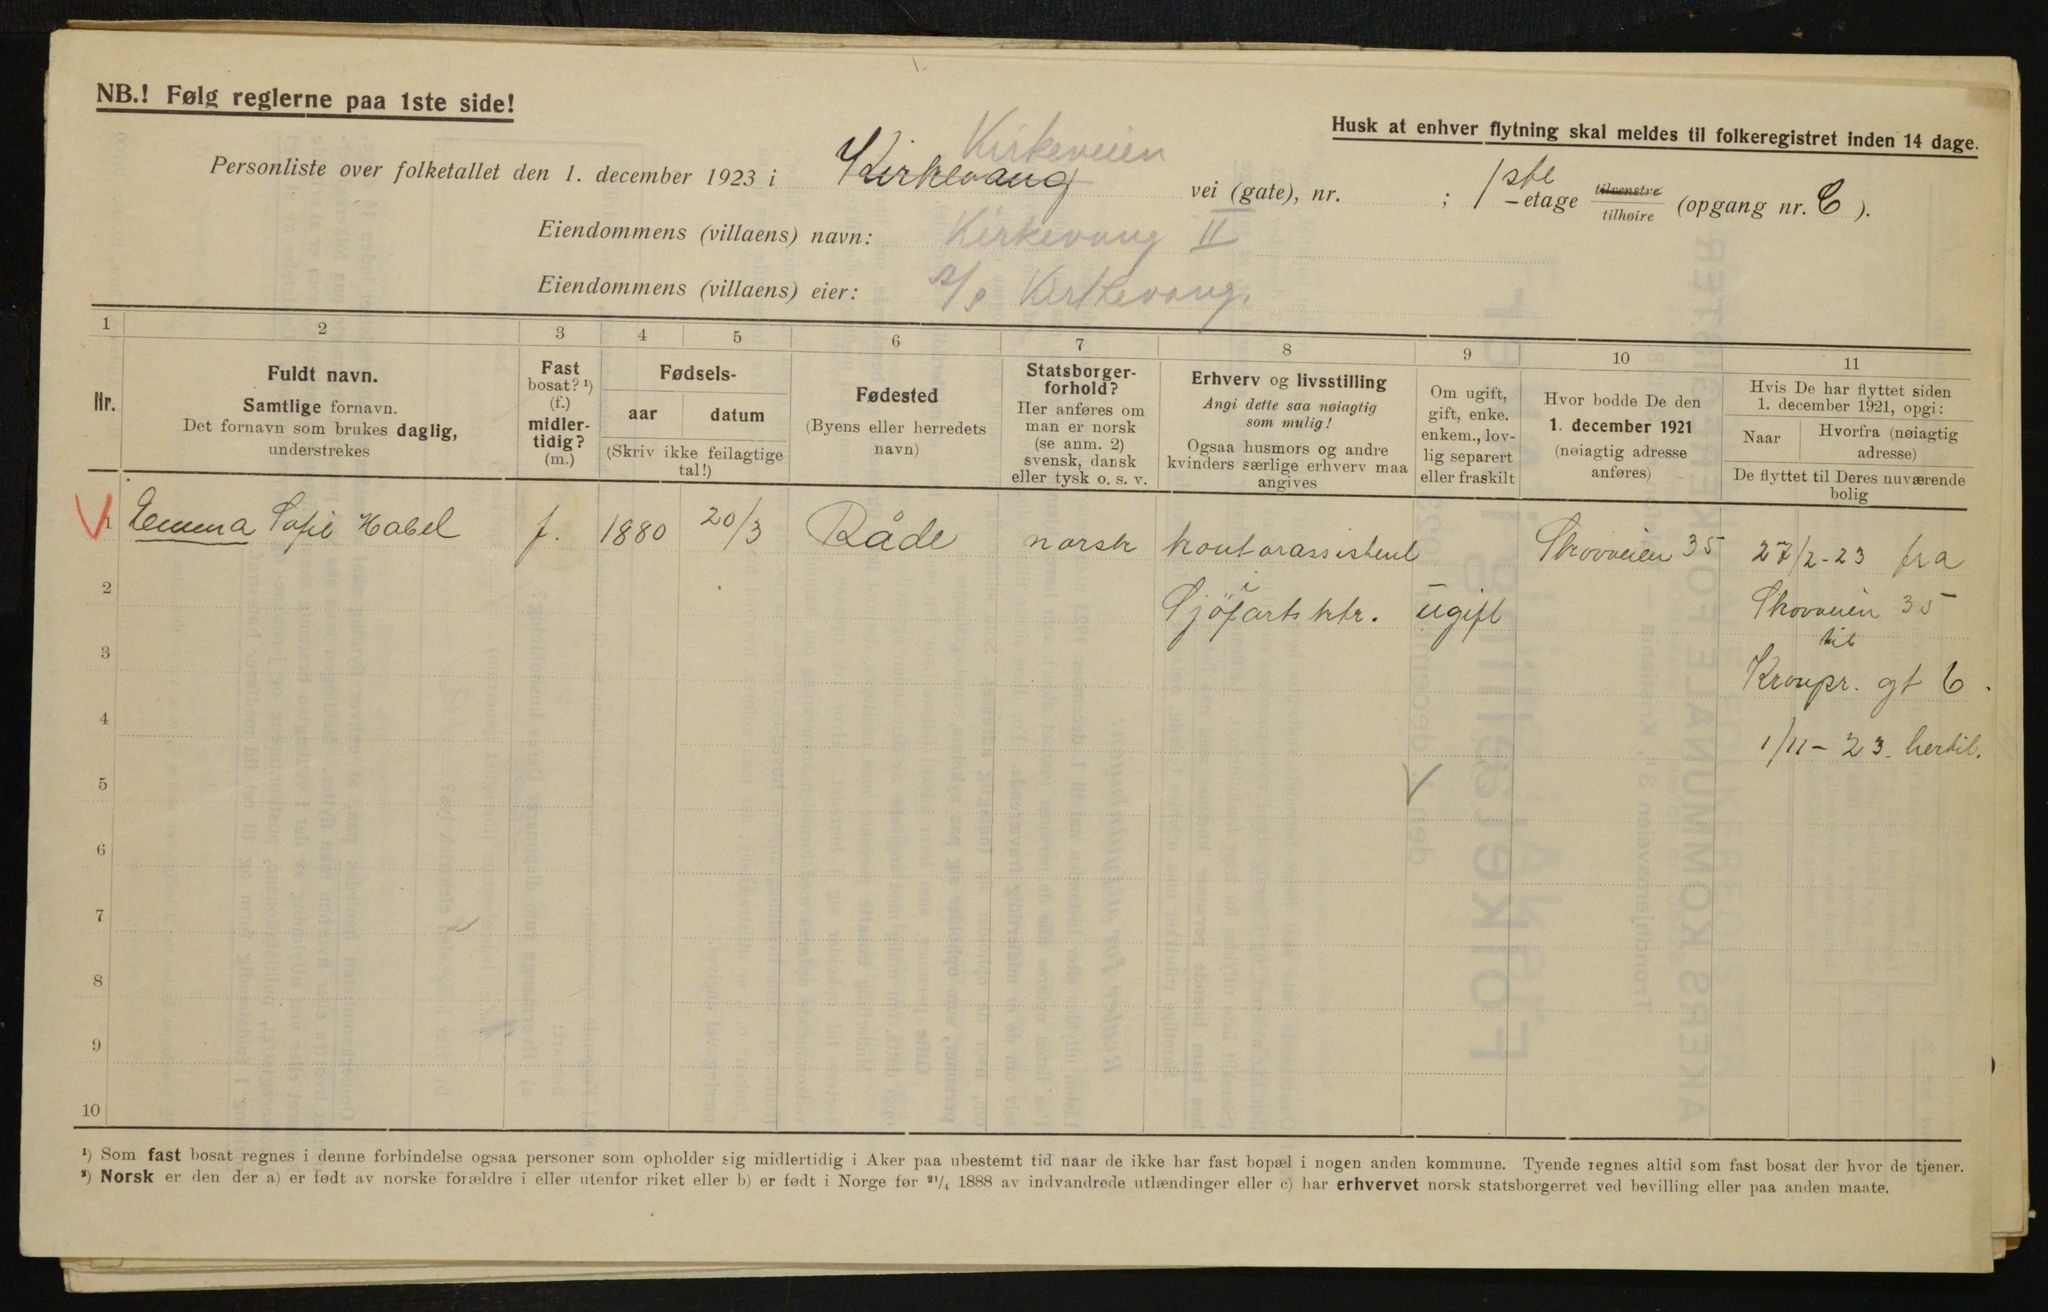 NB.! Følg reglerne paa 1ste side!
Husk at enhver flytning skal meldes til folkeregistret inden 14 dage.
Kirkeveien
Personliste over folketallet den 1. december 1923 i Kirkevang vei (gate), nr. ; 1ste-etage tilvenstre tilhøire (opgang nr. C).
Eiendommens (villaens) navn: Kirkevang II
Eiendommens (villaens) eier: A/S Kirkevang.
1 2 3 4 5 6 7 8 9 10 11
Nr.
Fuldt navn.
Samtlige fornavn.
Det fornavn som brukes daglig,
understrekes
Fast
bosat? ¹)
(f.)
midler-
tidig?
(m.)
Fødsels-
aar datum
(Skriv ikke feilagtige
tal!)
Fødested
(Byens eller herredets
navn)
Statsborger-
forhold?
Her anføres om
man er norsk
(se anm. 2)
svensk, dansk
eller tysk o. s. v.
Erhverv og livsstilling
Angi dette saa nøiagtig
som mulig!
Ogsaa husmors og andre
kvinders særlige erhverv maa
angives
Om ugift,
gift, enke.
enkem., lov-
lig separert
eller fraskilt
Hvor bodde De den
1. december 1921
(nøiagtig adresse
anføres)
Hvis De har flyttet siden
1. december 1921, opgi:
Naar Hvorfra (nøiagtig
adresse)
De flyttet til Deres nuværende
bolig
1 Emma Sofie Habel f. 1880 20/3 Råde norsk kontorassistent Skovveien 35 27/2-23 fra
2 Sjöfartsktr. ugift Skovveien 35
til
3 Kronpr. gt 6.
4 1/11-23. hertil.
5
6
7
8
9
10
¹) Som fast bosat regnes i denne forbindelse ogsaa personer som opholder sig midlertidig i Aker paa ubestemt tid naar de ikke har fast bopæl i nogen anden kommune. Tyende regnes altid som fast bosat der hvor de tjener.
²) Norsk er den der a) er født av norske forældre i eller utenfor riket eller b) er født i Norge før ²¹/₄ 1888 av indvandrede utlændinger eller c) har erhvervet norsk statsborgerret ved bevilling eller paa anden maate.